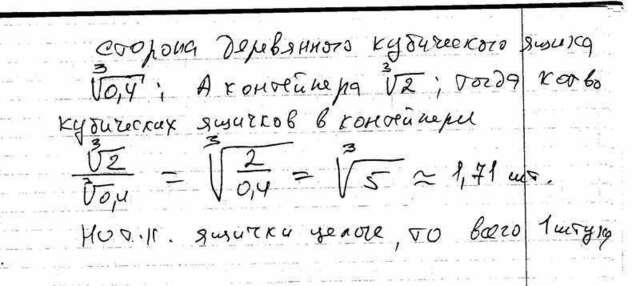 сторона деревянного кубического ящика
∛0,4; А контейнера ∛2; тогда кол-во
кубических ящичков в контейнере
∛2/∛0,4 = ∛(2/0,4) = ∛5 ≈ 1,71 шт.
Но т.к. ящички целые, то всего 1 штука